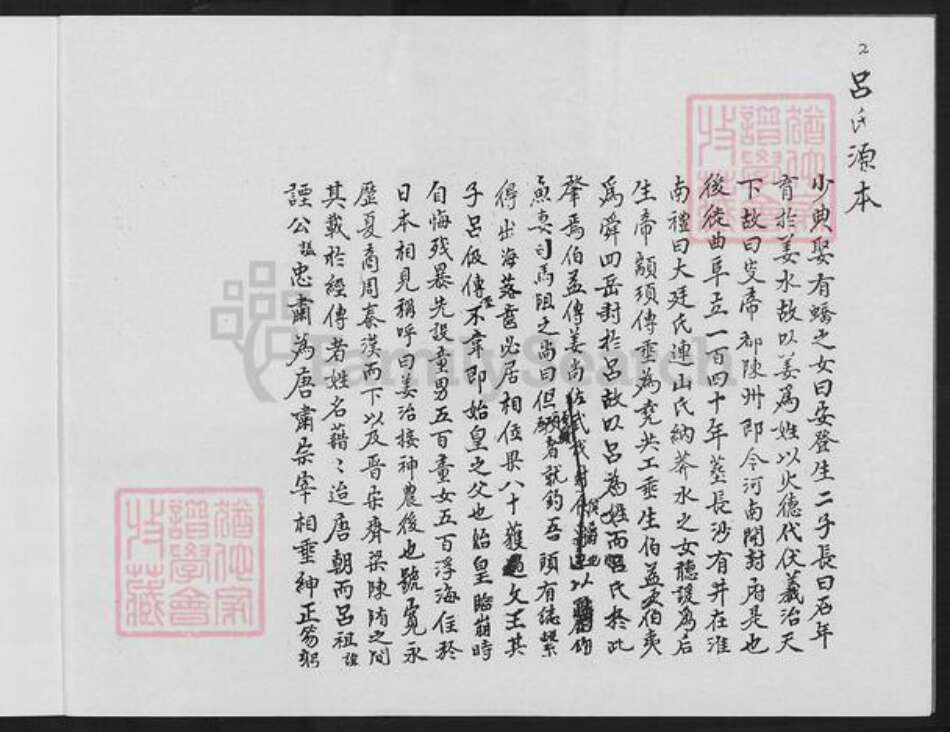 2
呂氏源本
少典娶有蟜之女曰安登生二子長曰石年
育於姜水故以姜為姓以火德代伏羲治天
下故曰炎帝都陳州即今河南開封府是也
後徙曲阜立一百四十年葬長沙有井在淮
南禮曰大廷氏連山氏納莽水之女聽談為后
生帝顓頊傳垂為堯共工垂生伯益及伯夷
為舜四岳封於呂故以呂為姓而呂氏於此
肇焉伯益傳姜尚佐武伐
魚妻司馬阻之尚曰但願者就釣吾頭有誌繫
得出海落齒必居相位果八十獲遇文王其
子呂伋傳至不韋即始皇之父也始皇臨崩時
自悔殘暴先設童男五百童女五百浮海住於
日本相見稱呼曰姜治接神農後也號寬永
歷夏商周秦漢而下以及晉宋齊梁陳隋之間
其載於經傳者姓名藉〻迨唐朝而呂祖諱
諲公諡忠肅為唐肅宗宰相垂紳正笏躬
猶他家
譜學會
收藏
猶他家
譜學會
收藏
FamilySearch